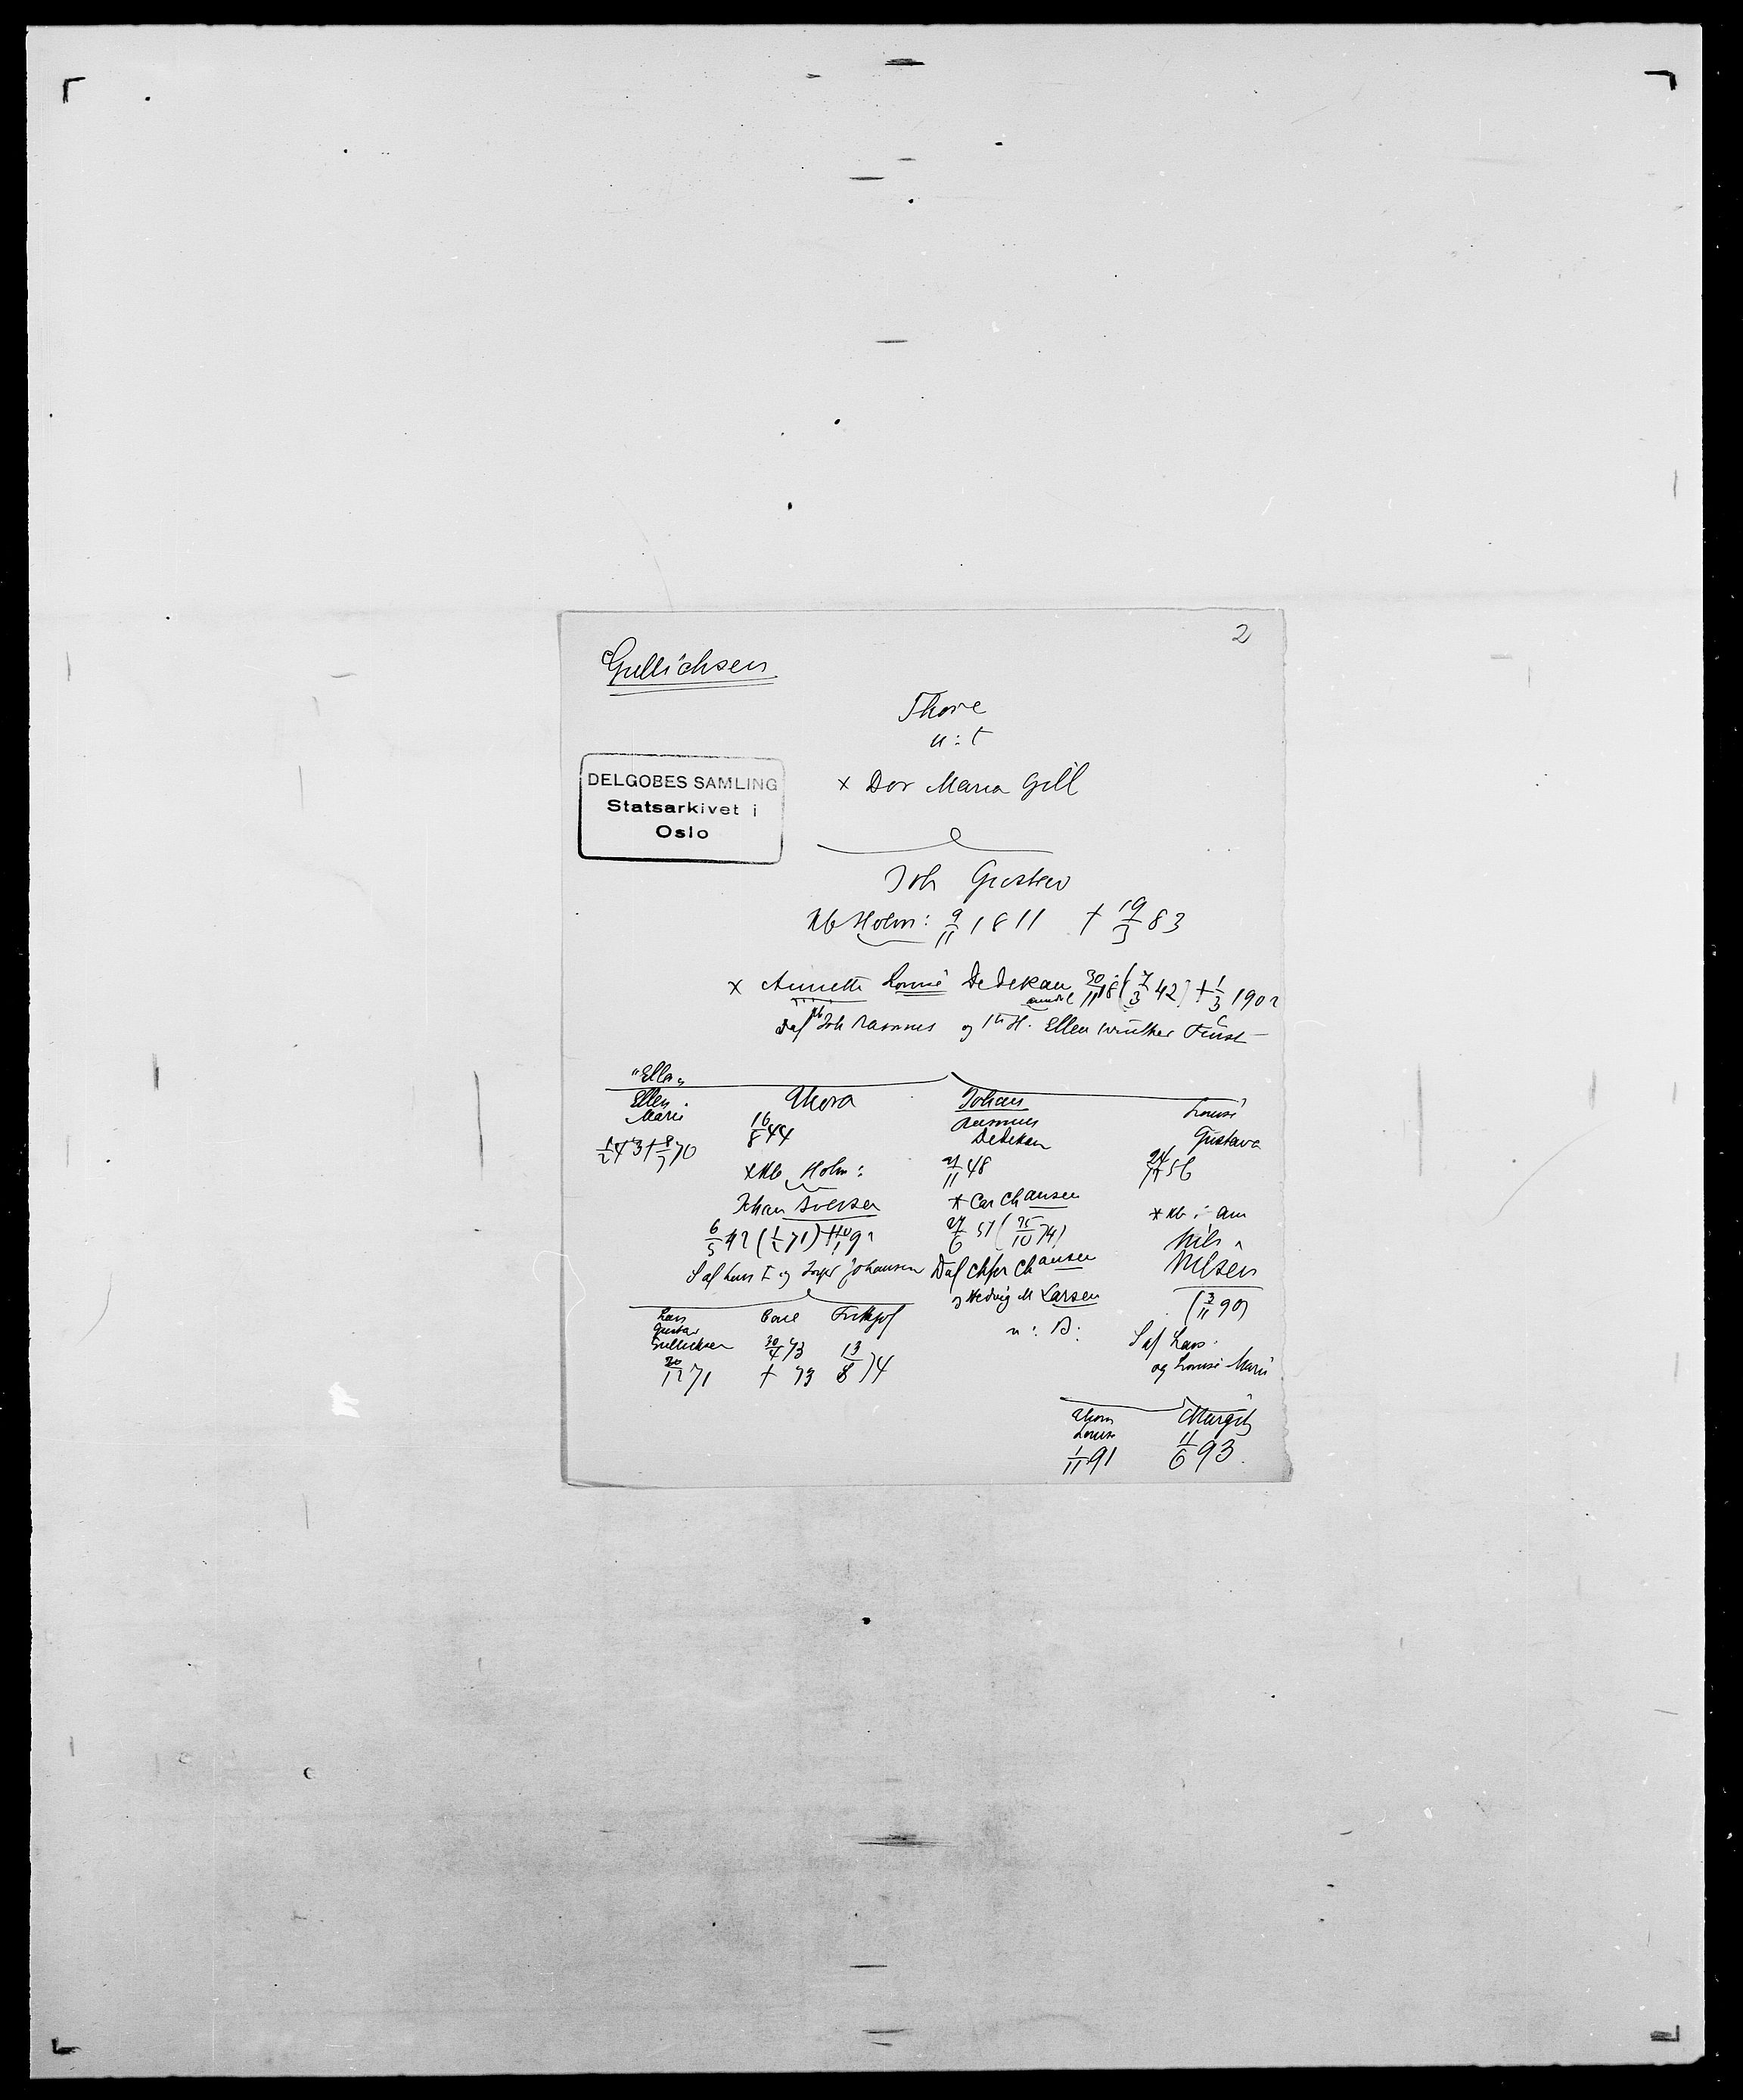 2
Gullichsen
Thore
u: t
DELGOBES SAMLING
Statsarkivet i
Oslo
x Dor Maria Gill
Joh Gustav
Kb Holm: 9/11 1811 † 19/3 83
x Annette Lovise Dedekan 30/11 18 (7/3 42) † 1/3 1902
Daf Joh Rasmus og Ellen Winther Furst
"Ella"
Ellen Marie
8/7 70
Thora
16/8 44
x Kb Holm:
Johan Iversen
6/5 42 (1/2 71)
S af Lars I og Johansen
Lars Gustav Gullichsen
30/12 71
30/4 73
† 73
Frithjof
13/8 74
Johan Rasmus Dedekan
21/11 48
* Car Chansen
27/6 51 (25/10 74)
Daf Chansen
og Hedvig M Larsen
n: B:
Louise Gustava
24/11 56
* Kb i Am
Nils
Nilsen
(3/11 90)
S af Lars
og Lovise Marie
Thora Louise
1/11 91
Margit
11/6 93